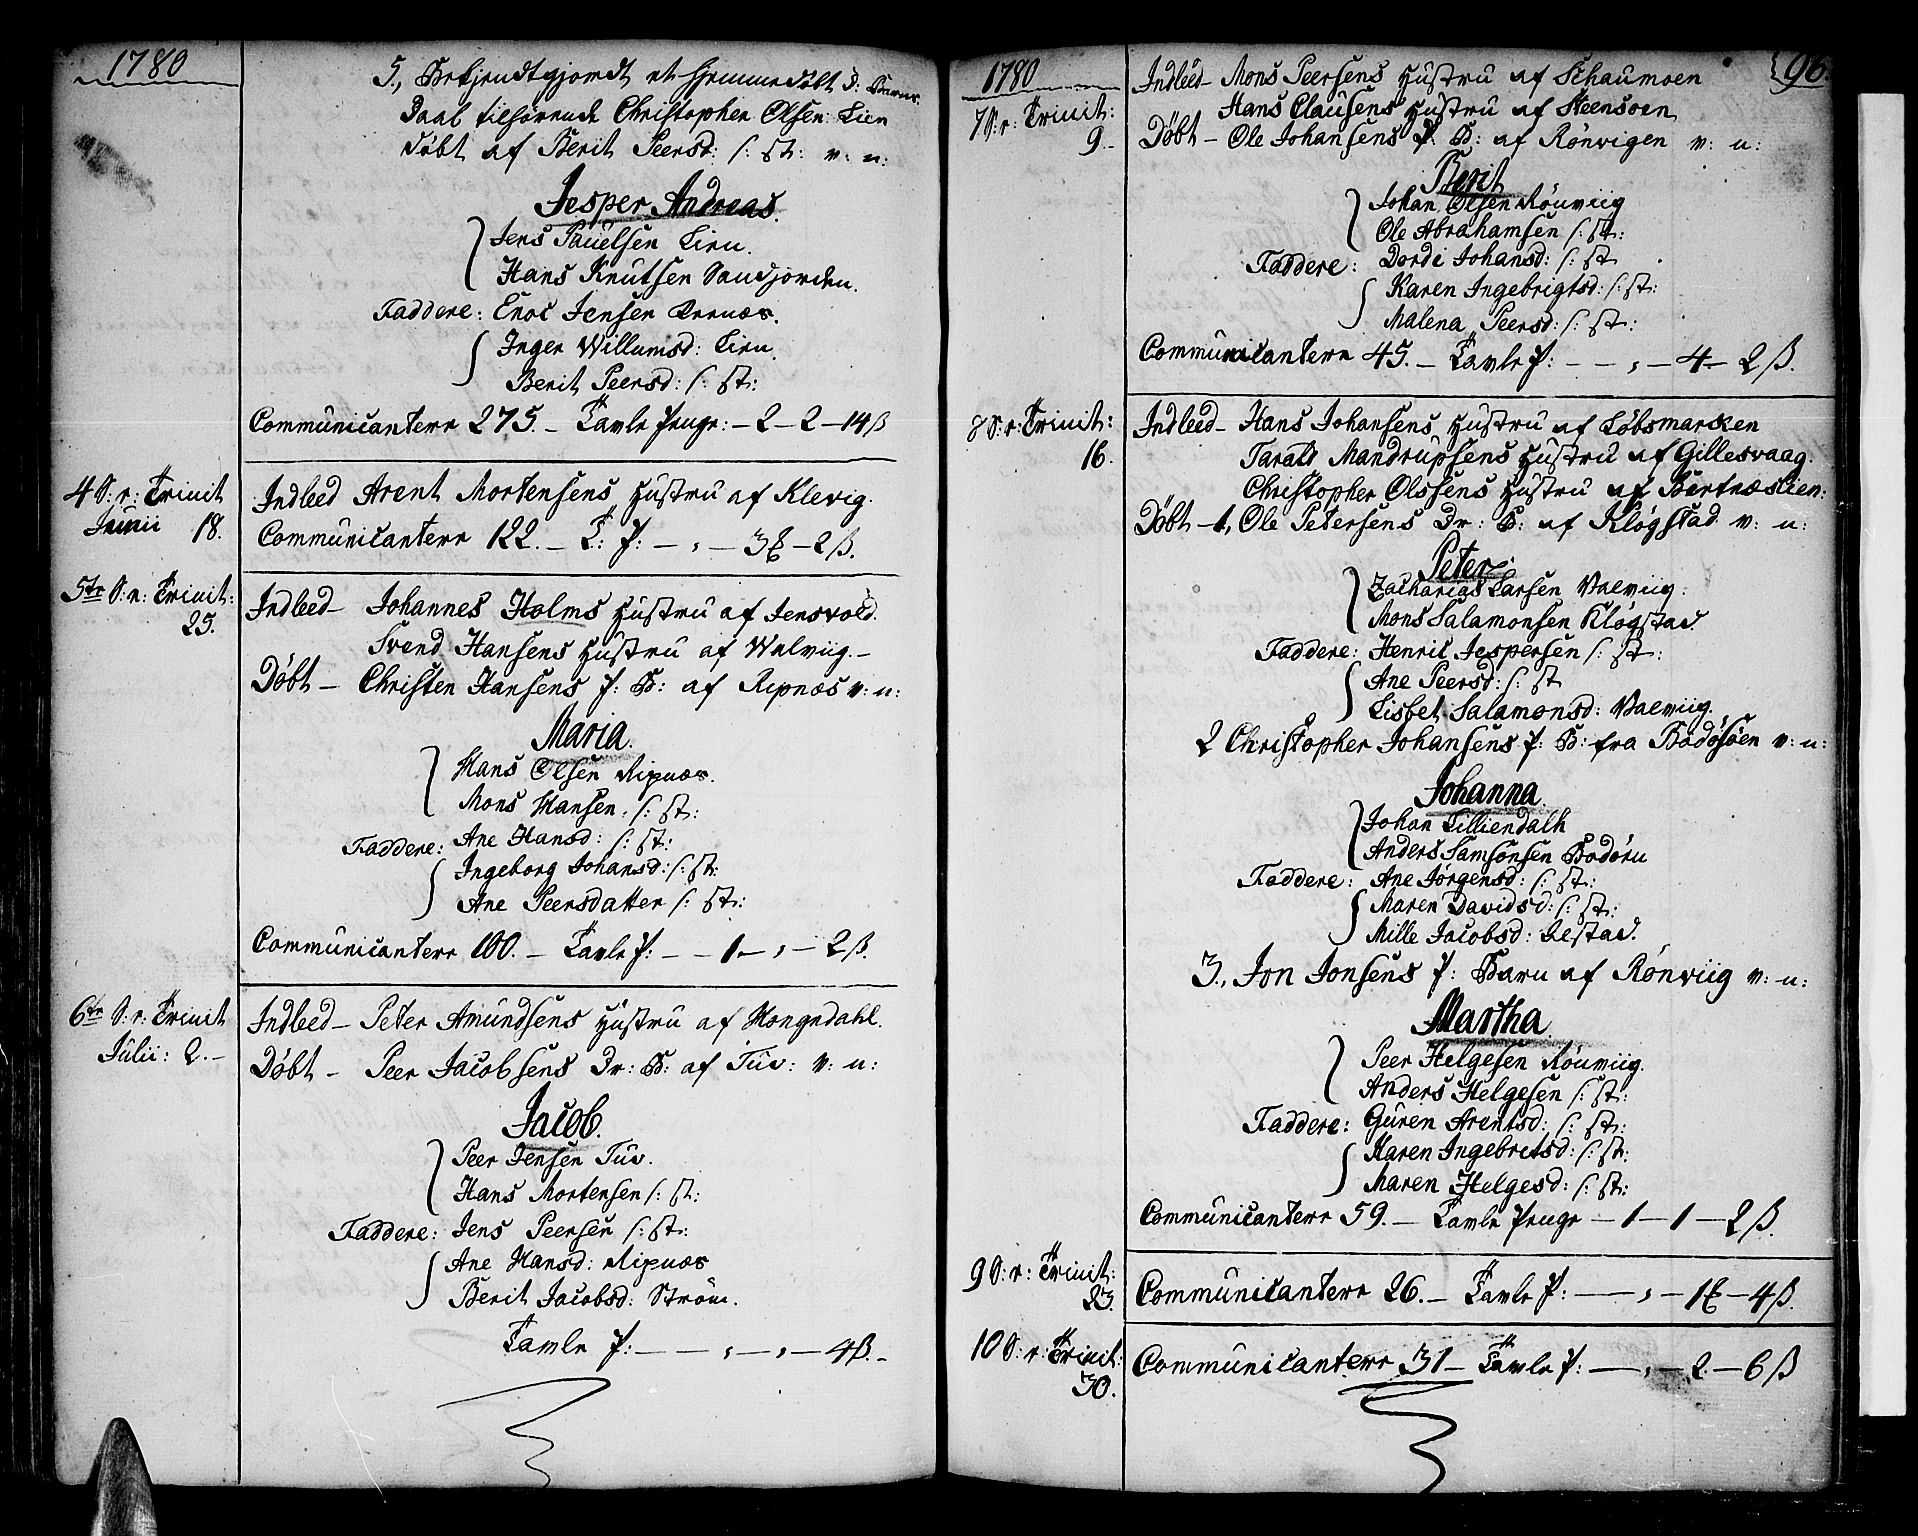 1780
5., Bekjendtgjordt et hjemmedøbt D: Barns
Daab tilhørende Christopher Olsen Lien
døbt af Berit Peersd: /: st: v: n:
Jesper Andreas.
Jens Pauelsen Lien.
Hans Knutsen Sandjorden.
Faddere: Enoc Jensen
Inger Willumsd: Lien.
Berit Peersd: /: st:
Communicantere 275. – Tavle Penge: – 2 – 2 – 14 ß
4 S: e: Trinit
Junii 18.
Indleed Arent Mortensens Hustru af Klevig.
Communicantere 122. – T: P: – „ – 3 – 2 ß.
5te S: e: Trinit:
25.
Indleed – Johannes Holms Hustru af Jensvold.
Svend Hansens Hustru af Walviig. –
Døbt – Christen Hansens P: B: af Ripnæs v: n:
Maria.
Hans Olsen Ripnæs.
Mons Hansen. /: st:
Faddere: Ane Hansd: /: st:
Ingeborg Johansd: /: st:
Ane Peersdatter /: st:
Communicantere 100. – Tavle P: – – 1 – „ – 2 ß.
6te S: e: Trinit
Julii: 2. –
Indleed – Peter Amundsens Hustru af Hongedahl.
Døbt – Peer Jacobsens Dr: B: af Tuv: v: n:
Jacob.
Peer Jensen Tuv.
Hans Mortensen /: st:
Faddere: Jens Peersen /: st:
Ane Hansd: Ripnæs
Berit Jacobsd: Strøm.
Tavle P: – – „ – „ – 4 ß. –
1780
96.
7 S: e: Trinit:
9 –
Indleed – Mons Peersens Hustru af Schaumoen
Hans Clausens Hustru af Steensoen
Døbt – Ole Johansens P: B: af Rønvigen v: n:
Berit
Johan Olsen Rønviig
Ole Abrahamsen /: st:
Faddere: Dordi Johansd: /: st
Karen Ingebrigtsd: /: st:
Malena Peersd: /: st:
Communicantere 45. – Tavle P: – – „ – 4 – 2 ß.
8 S: e: Trinit:
16.
Indleed – Hans Johansens Hustru af Løbsmarken
Tarald Mandrupsens Hustru af Gillesvaag.
Christopher Olssens Hustru af Bertnæslien:
Døbt – 1, Ole Petersens Dr: B: af Kløgstad v: n:
Peter
Zacharias Larsen Valviig:
Mons Salamonsen Kløgstad.
Faddere: Henric Jespersen /: st:
Ane Peersd: /: st
Lisbet Salamonsd: Valviig.
2 Christopher Johansens P: B: fra Bodøsøen v: n:
Johanna.
Johan Lilliendalh
Anders Samsonsen Bodøen
Faddere: Ane Jørgensd: /: st:
Maren Davidsd: /: st:
Mille Jacobsd: Jestad.
3., Jon Jonsens P: Barn af Rønviig v: n:
Martha.
Peer Helgesen Rønviig.
Anders Helgesen /: st:
Faddere: Guren Arentsd: /: st:
Karen Ingebretsd: /: st:
Maren Helgesd: /: st:
Communicantere 59. – Tavle Penge – 1 – 1 – 2 ß.
9 S: e: Trinit:
23.
Communicantere 26. – Tavle P: – „ – 1 – 4 ß.
10 S: e: Trinit:
30.
Communicantere 31 – Tavle P: – „ – 2 – 6 ß